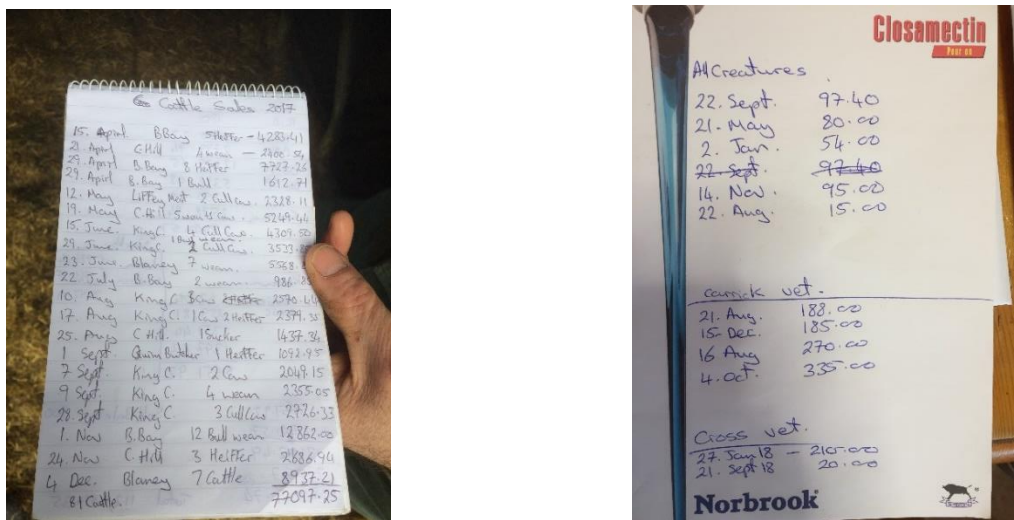 Cattle Sales 2017
15. April B Bay 5 Heiffer - 4283.41
21 April C Hill 4 wean - 2400.
29. April B. Bay 8 Heiffer 7727.26
29. April B. Bay 1 Bull 1612.71
12. May Liffey Meat 2 Cull cow. 2328.11
19. May C. Hill 5 wean Cow. 5249.44
15. June. King C. 4 Cull Cow. 4309.50
1 Bull wean.
29. June. King C. 2 Cull Cow 3533.
23. June. Blaney 7 wean. 5568.
22 July B. Bay 2 wean. 986.
10. Aug King C. 3 Cow 2570.44
17. Aug King C. 1 Cow 2 Heiffer 2379.35
25. Aug C Hill. 1 Sucker 1437.34
1 Sept Quinn Butcher 1 Heiffer 1092.95
7 Sept. King C. 2 Cow 2049.15
9 Sept. King C. 4 wean 2355.05
28. Sept King C. 3 Cull Cow 2726.33
1. Nov B. Bay 12 Bull wean 12862.00
24. Nov C. Hill 3 Heiffer 2686.94
4 Dec. Blaney 7 Cattle 8937.21
81 Cattle. 77097.25
Closamectin
Pour on
All Creatures
22. Sept. 97.40
21. May 80.00
2. Jan. 54.00
22. Sept. 97.40
14. Nov. 95.00
22. Aug. 15.00
Carrick vet.
21. Aug. 188.00
15. Dec. 185.00
16 Aug 270.00
4. Oct. 335.00
Cross vet.
27. Jan 18 - 210.00
21. Sept 18 20.00
Norbrook